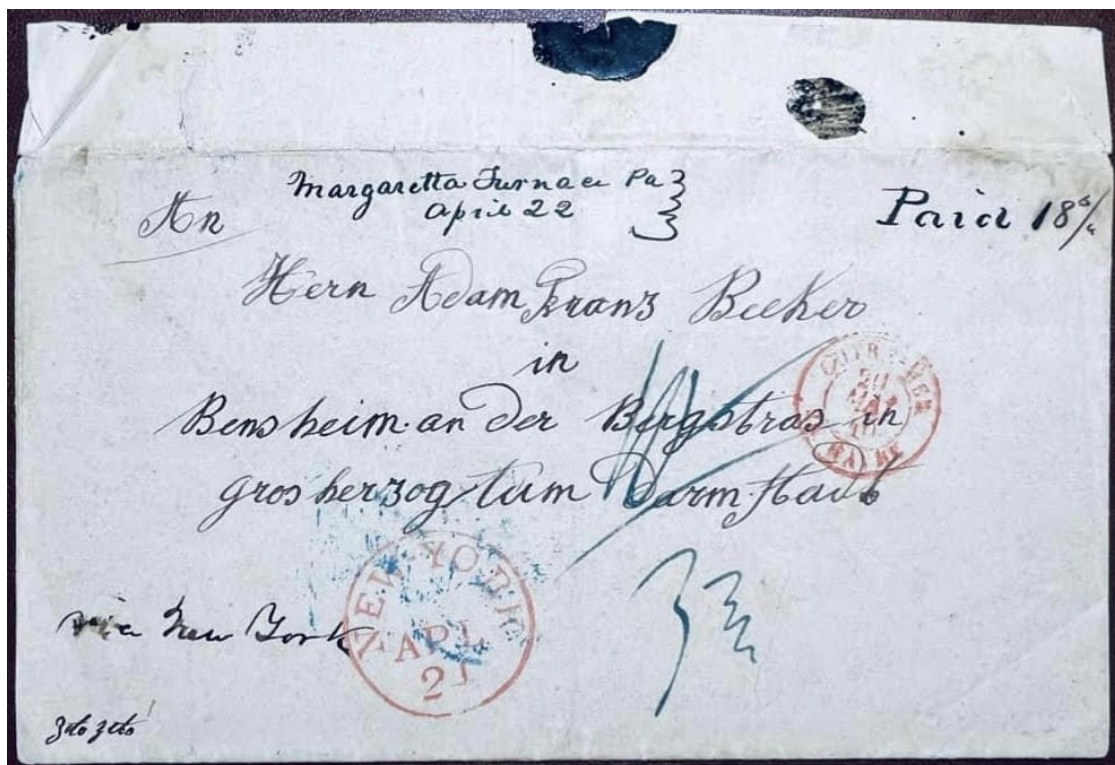 Margaretta Furnace Pa
April 22
Paid 18 3/4
An
Hern Adam Franz Becker
in
Bensheim an der Bergstras in
grosherzogtum Darmstadt
OUTRE-MER
20
MAI
HAVRE
NEW YORK
APL
via New York